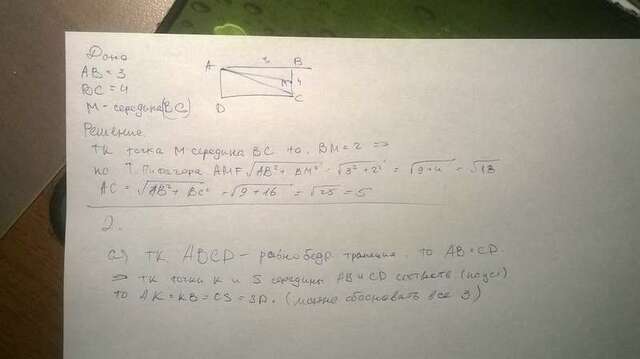 Дано
AB = 3
BC = 4
M - середина BC
A
B
M
4
C
D
Решение
тк точка M середина BC то. BM = 2 =>
по Т. Пифагора AM = √AB² + BM² = √3² + 2² = √9+4 = √13
AC = √AB² + BC² = √9 + 16 = √25 = 5
2.
а) тк ABCD - равнобедр. трапеция. то AB = CD.
=> тк точки K и S середины AB и CD соответв (по усл)
то AK = KB = CS = SD. (можно обосновать все 3)